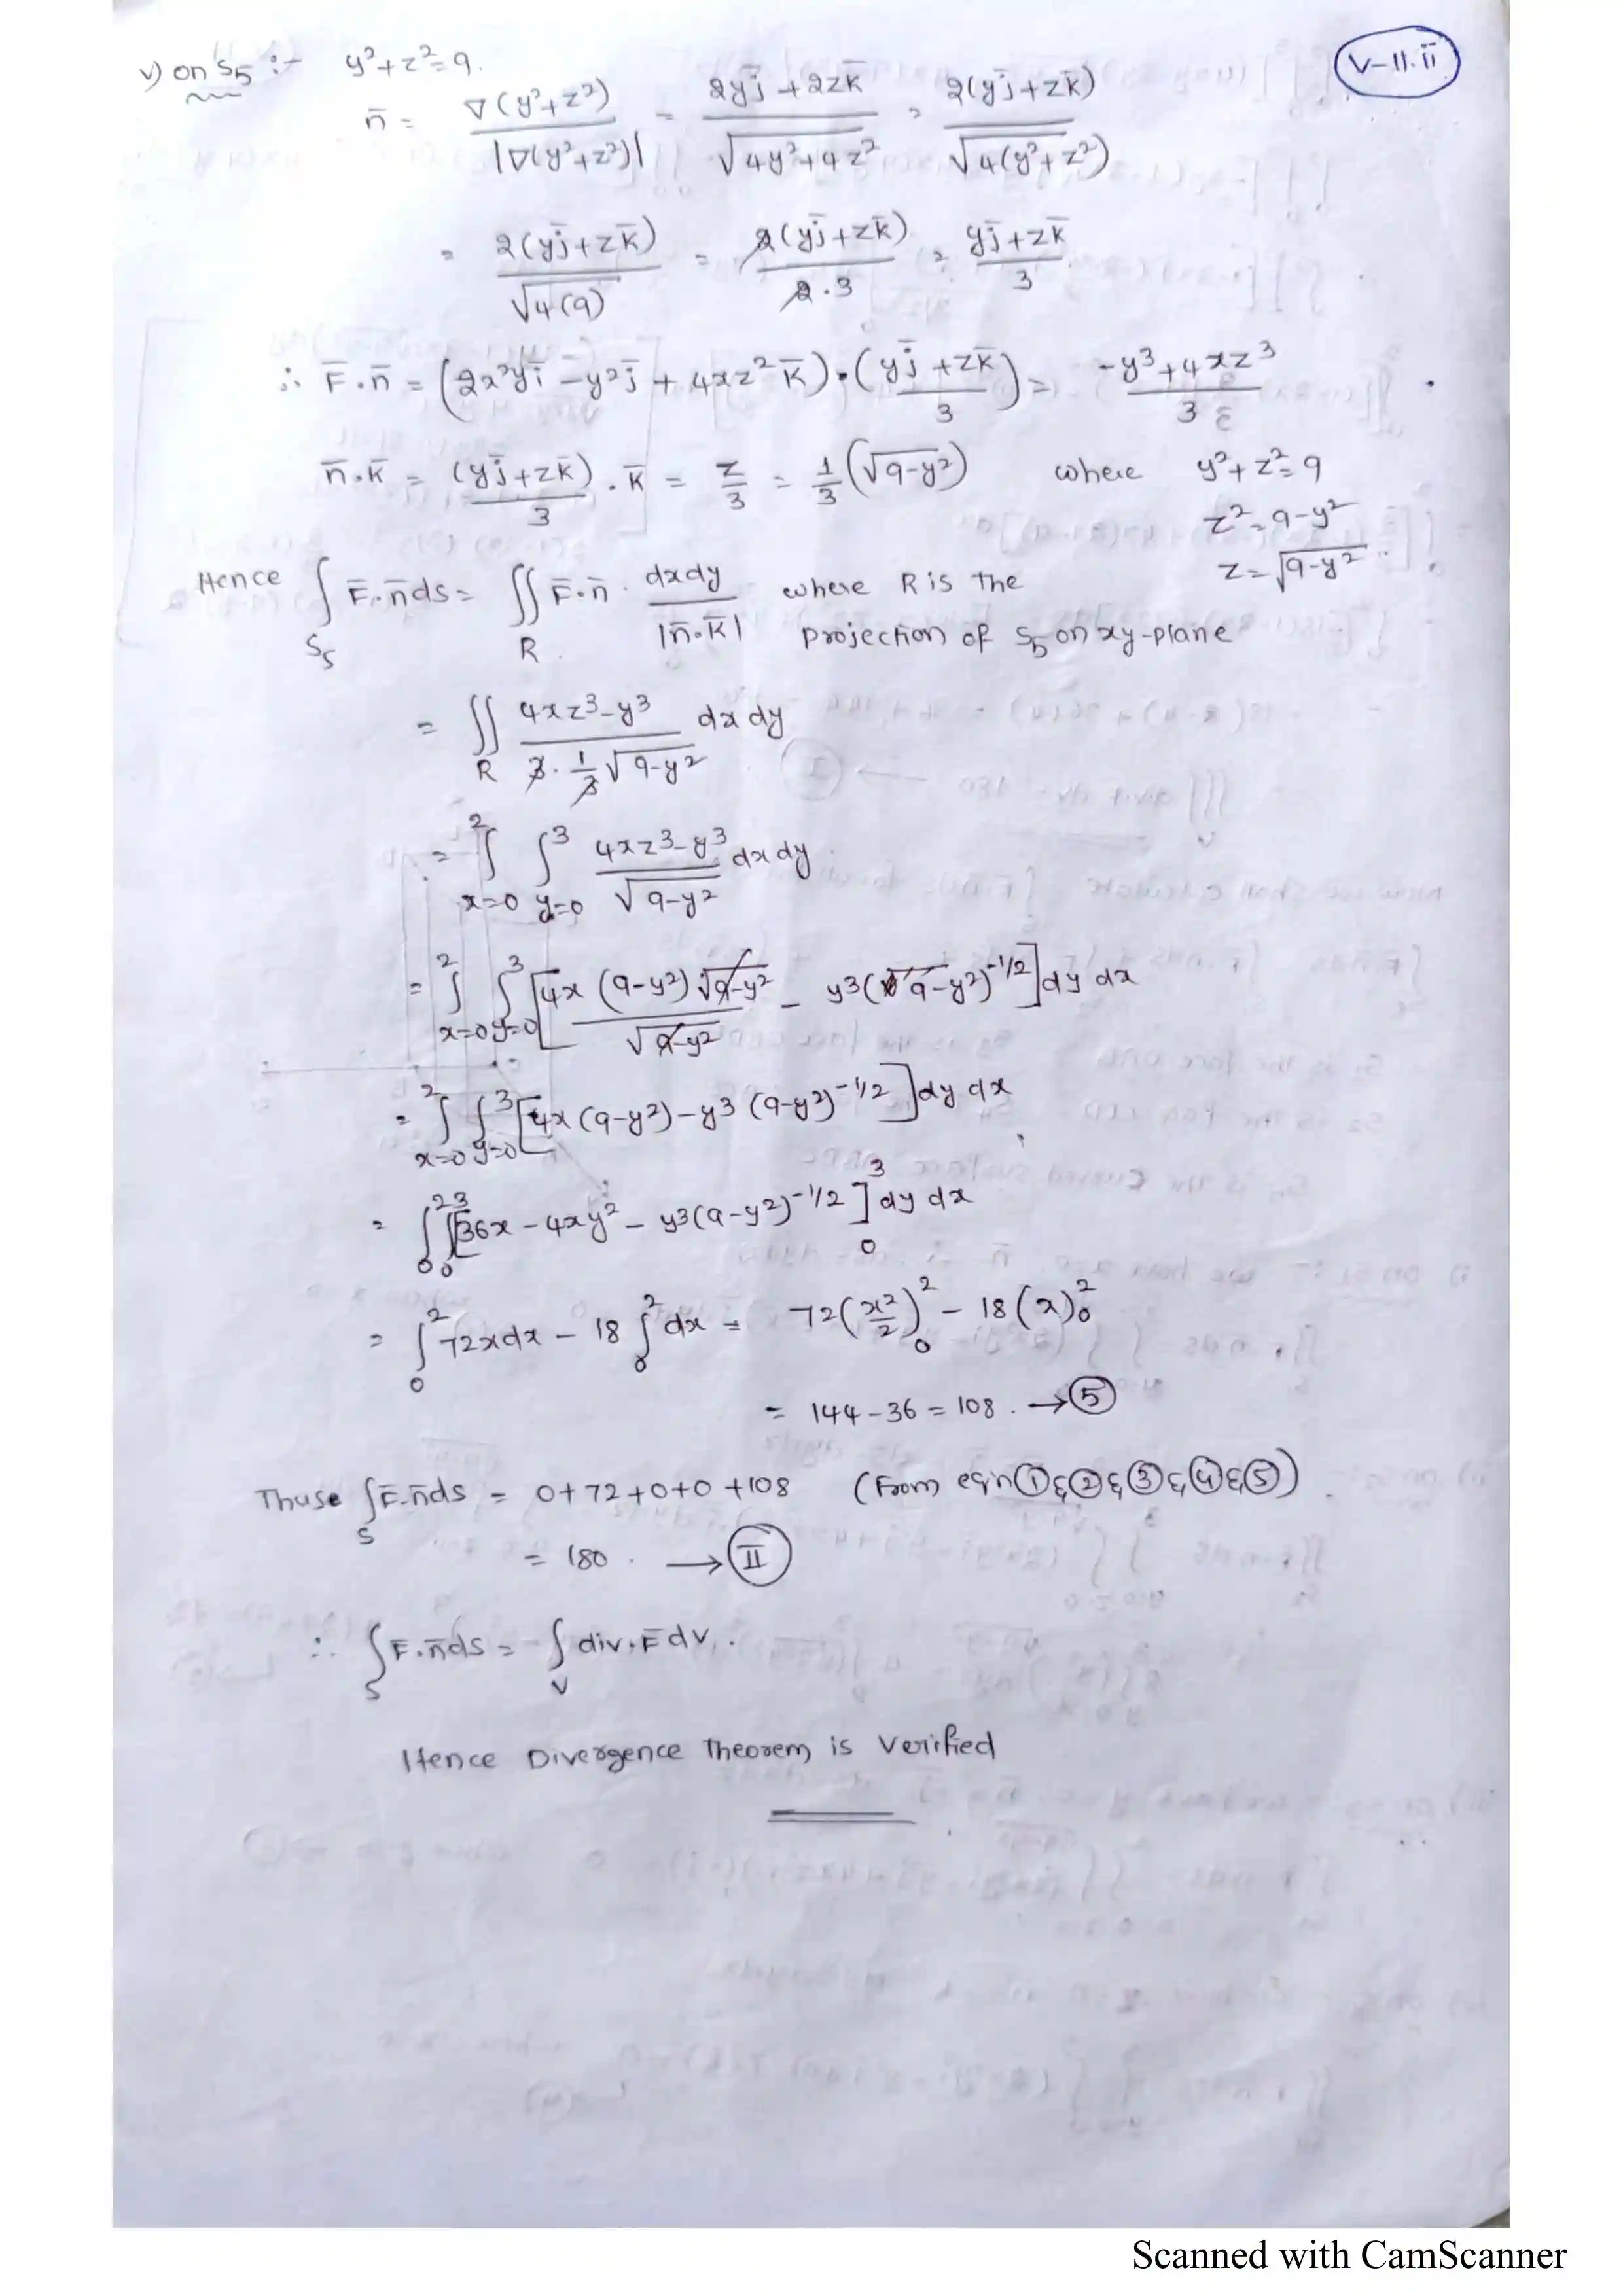 V-11.ii
v) on S5 :- y²+z²=9.
n̄ = ∇(y²+z²) / |∇(y²+z²)| = 2yj̄ + 2zk̄ / √4y²+4z² = 2(yj̄+zk̄) / √4(y²+z²)
= 2(yj̄+zk̄) / √4(9) = 2(yj̄+zk̄) / 2.3 = yj̄+zk̄ / 3
∴ F̄.n̄ = (2x²yī - y²j̄ + 4xz²k̄).(yj̄+zk̄ / 3) = -y³+4xz³ / 3
n̄.k̄ = (yj̄+zk̄)/3 . k̄ = z/3 = 1/3 (√9-y²) where y²+z²=9
z²=9-y²
z=√9-y²
Hence ∫S5 F̄.n̄ds = ∬R F̄.n̄ . dxdy / |n̄.k̄| where R is the
projection of S5 on xy-plane
= ∬R 4xz³-y³ / 3.1/3 √9-y² dxdy
= ∫x=0^2 ∫y=0^3 4xz³-y³ / √9-y² dxdy
= ∫x=0^2 ∫y=0^3 [4x(9-y²)√9-y² / √9-y² - y³(9-y²)^-1/2] dy dx
= ∫x=0^2 ∫y=0^3 [4x(9-y²)-y³(9-y²)^-1/2] dy dx
= ∫0^2 ∫0^3 [36x-4xy²-y³(9-y²)^-1/2]0^3 dy dx
= ∫0^2 72xdx - 18 ∫0^2 dx = 72(x²/2)0^2 - 18(x)0^2
= 144-36=108. → ⑤
Thuse ∫S F̄.n̄ds = 0+72+0+0+108 (From eqn ① & ② & ③ & ④ & ⑤)
= 180. → Ⅱ
∴ ∫S F̄.n̄ds = ∫V div.F̄dv.
Hence Divergence Theorem is Verified
Scanned with CamScanner